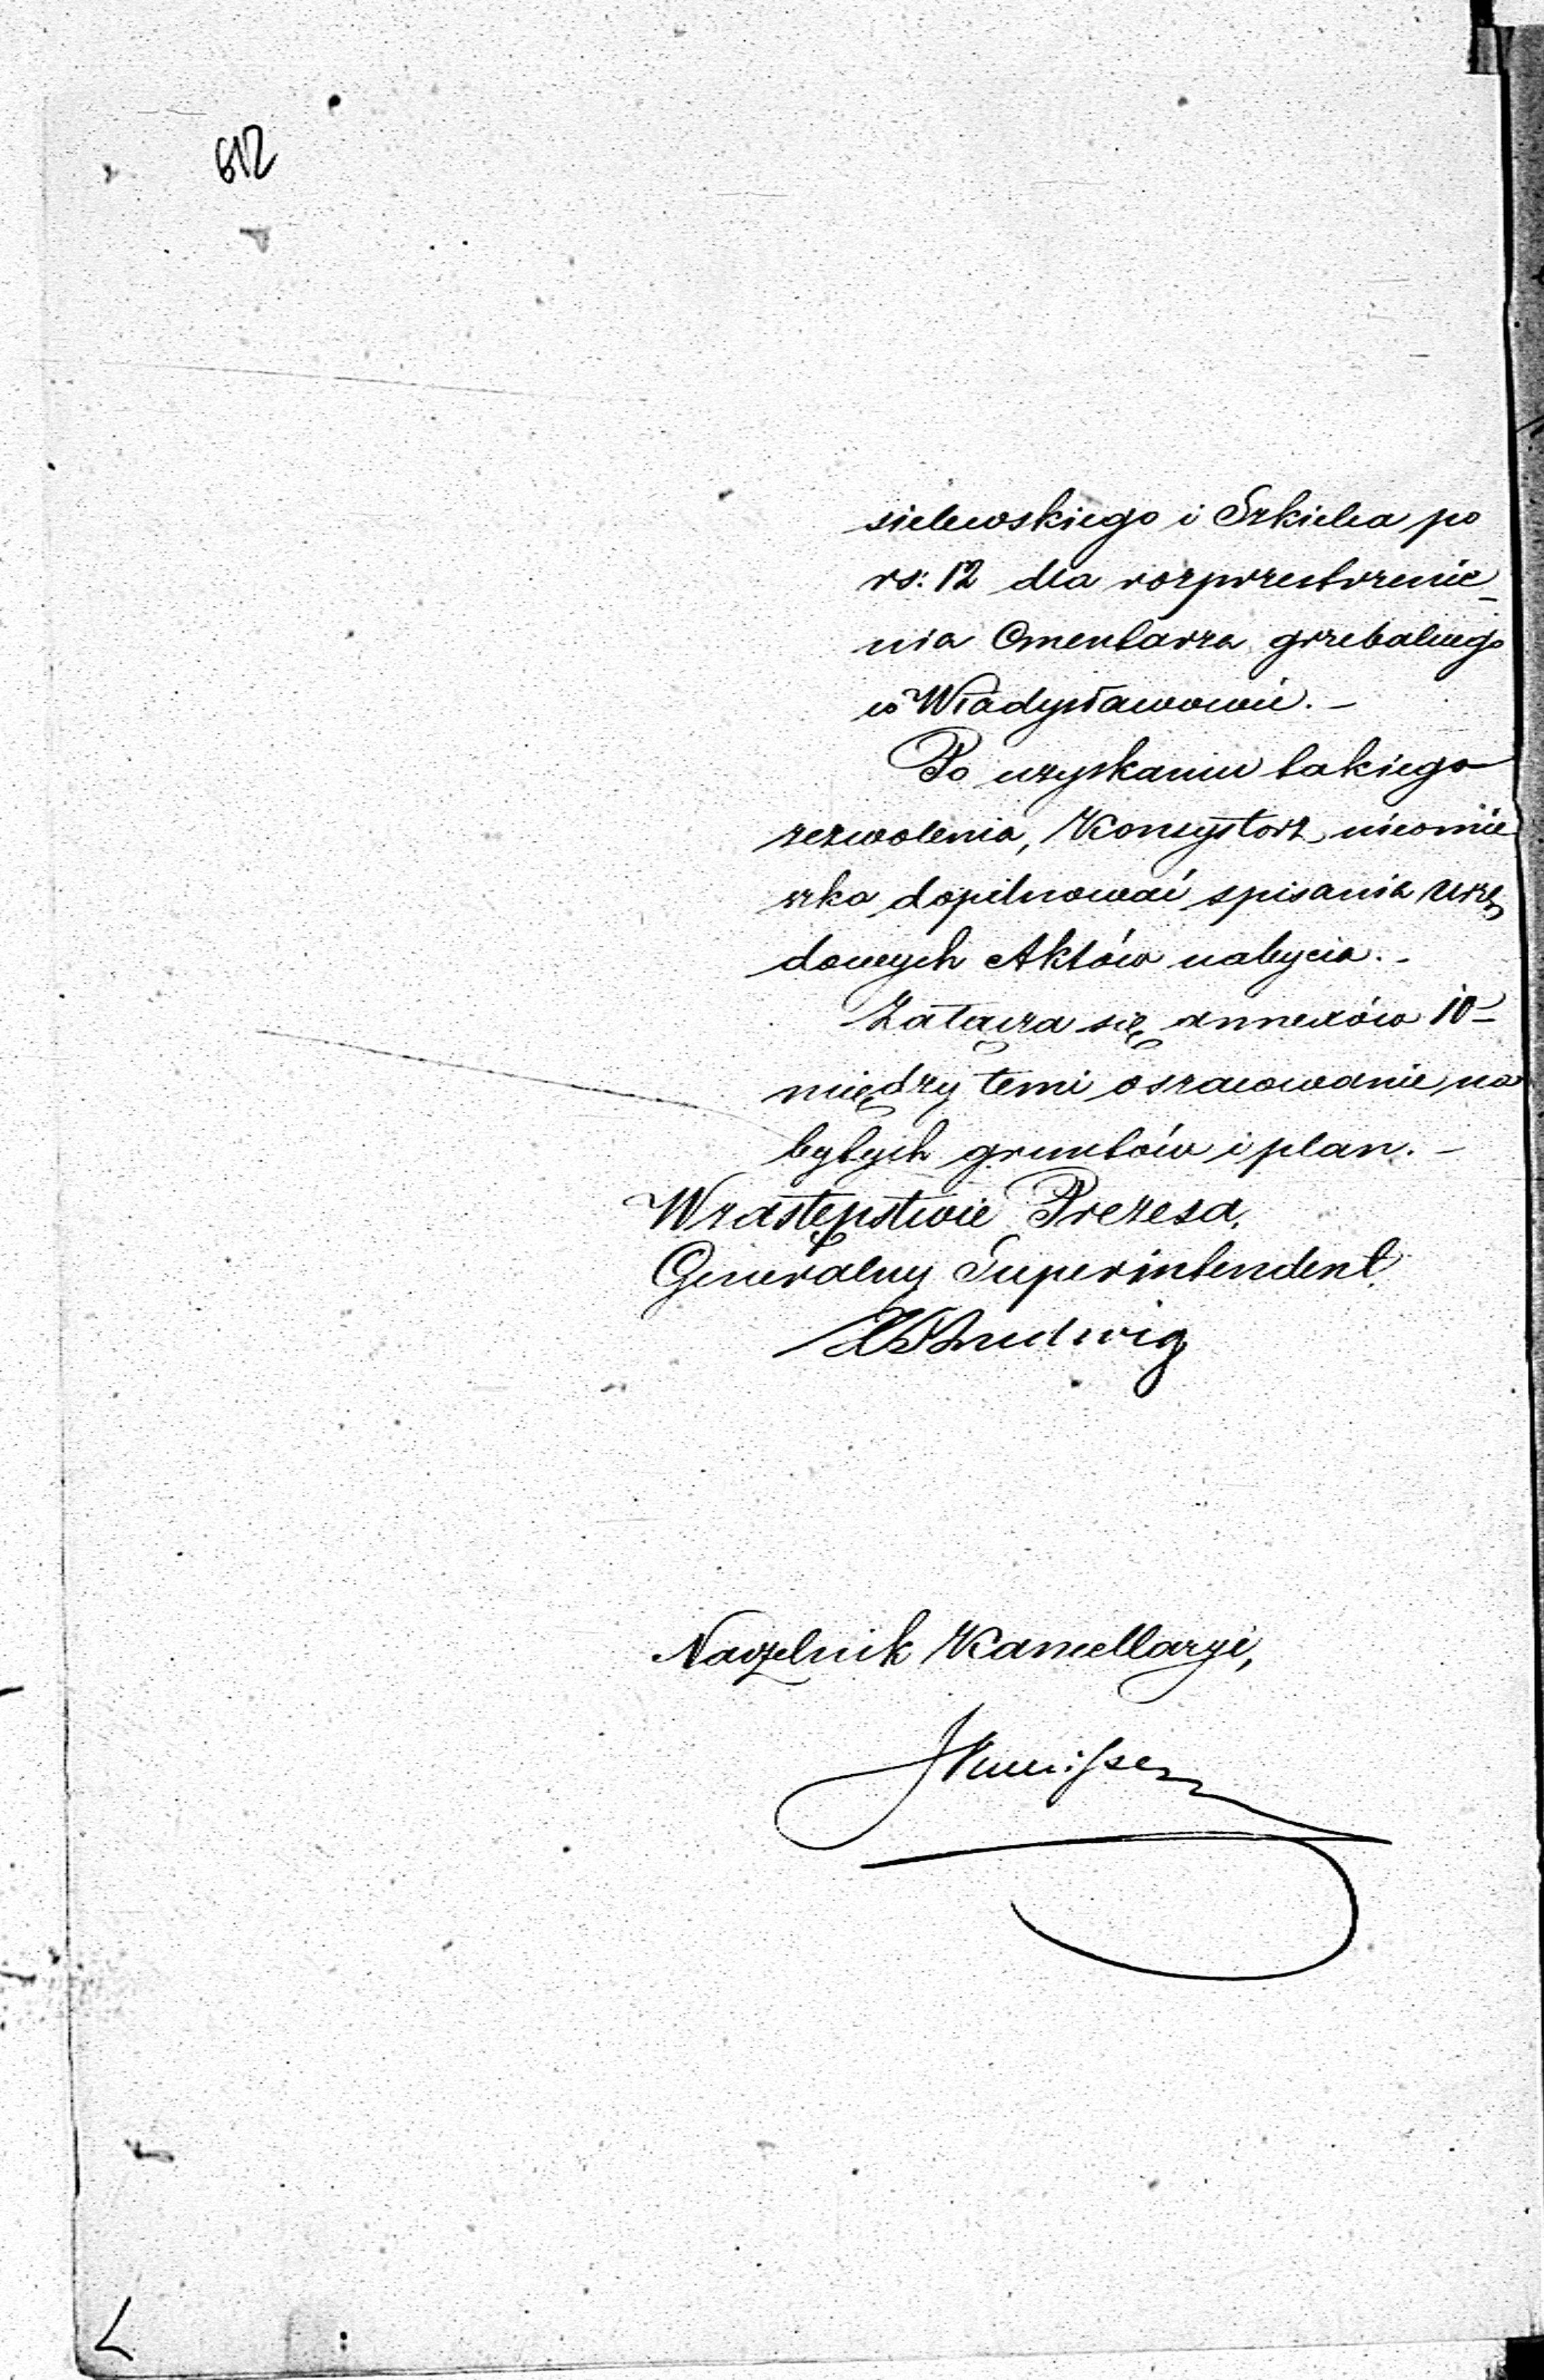 612
sielewskiego i Szkiela po
rs: 12 dla rozprzestrzenie_
nia Cmentarza grzebalnego
w Władysławowie. –
Po uzyskaniu takiego
zezwolenia, Konsystorz nieomie
szka dopilnować spisania urzę
dowych Aktów nabycia. –
Załącza się annexów 10 –
między temi oszacowanie na
bytych gruntów i plan. –
W zastępstwie Prezesa,
Generalny Superintendent
Ludwig
Naczelnik Kancellaryi,